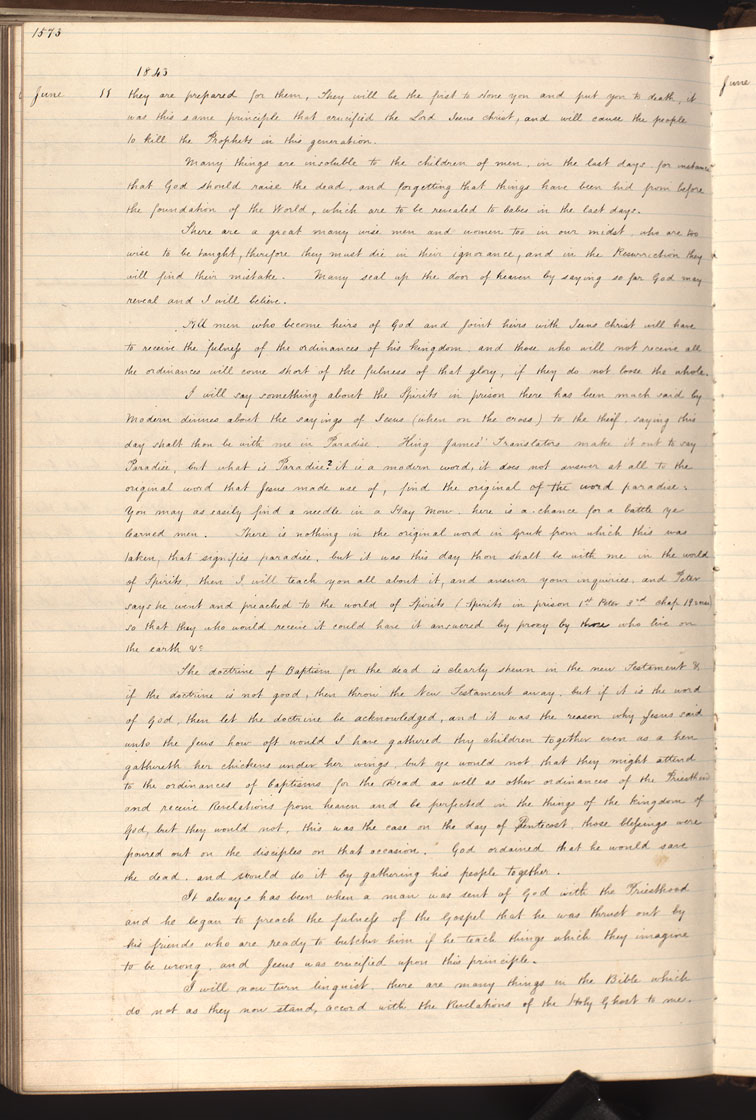 1573
1843
June 11 they are prepared for them, They will be the first to stone you and put you to death, it
was this same principle that crucified the Lord Jesus christ, and will cause the people
to kill the Prophets in this generation.
Many things are insoluble to the children of men, in the last days. for instance
that God should raise the dead, and forgetting that things have been hid from before
the foundation of the World, which are to be revealed to babes in the last days.
There are a great many wise men and women too in our midst, who are too
wise to be taught, therefore they must die in their ignorance, and in the Resurrection they
will find their mistake. Many seal up the door of heaven by saying so far God may
reveal and I will believe.
All men who become heirs of God and joint heirs with Jesus christ will have
to receive the fulness of the ordinances of his kingdom, and those who will not receive all
the ordinances will come short of the fulness of that glory, if they do not loose the whole.
I will say something about the Spirits in prison there has been much said by
Modern divines about the sayings of Jesus (when on the cross) to the thief, saying this
day shalt thou be with me in Paradise. King James' Translators make it out to say
Paradise, but what is Paradise? it is a modern word, it does not answer at all to the
original word that Jesus made use of, find the original of the word paradise.
You may as easily find a needle in a Hay Mow. here is a chance for a battle ye
learned men. There is nothing in the original word in Greek from which this was
taken, that signifies paradise, but it was this day thou shalt be with me in the world
of Spirits, then I will teach you all about it, and answer your inquiries, and Peter
says he went and preached to the world of Spirits (Spirits in prison 1st Peter 3rd chap. 19 verse)
so that they who would receive it could have it answered by proxy by those who live on
the earth &c
The doctrine of Baptism for the dead is clearly shewn in the new Testament &
if the doctrine is not good, then throw the New Testament away, but if it is the word
of God, then let the doctrine be acknowledged, and it was the reason why Jesus said
unto the Jews how oft would I have gathered thy children together even as a hen
gathereth her chickens under her wings, but ye would not that they might attend
to the ordinances of baptisms for the Dead as well as other ordinances of the Priesthood
and receive Revelations from heaven and be perfected in the things of the kingdom of
God, but they would not, this was the case on the day of Pentecost, those blessings were
poured out on the disciples on that occasion. God ordained that he would save
the dead, and would do it by gathering his people together.
It always has been when a man was sent of God with the Priesthood
and he began to preach the fulness of the Gospel that he was thrust out by
his friends who are ready to butcher him if he teach things which they imagine
to be wrong, and Jesus was crucified upon this principle.
I will now turn linguist, there are many things in the Bible which
do not as they now stand, accord with the Revelations of the Holy Ghost to me.
June